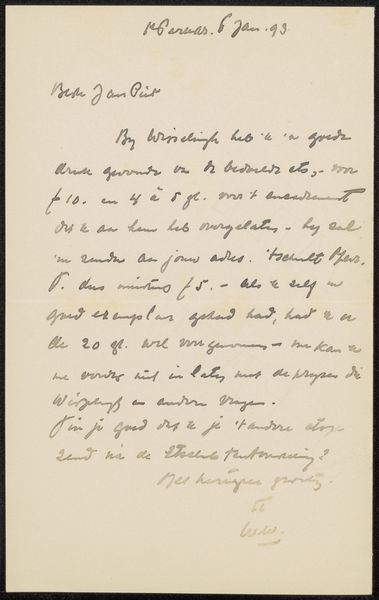 6 Jan. 93
Beste Jan Piet
By Wisselingh heb 'k 'n goede
druk gevonden van de bedoelde ets, - voor
ƒ 10. en 4 à 5 gl. voor 't encadrement
dat 'k aan hem heb overgelaten - hy zal
'm zenden aan jouw adres. 't scheelt
dus minstens ƒ 5. - als 'k zelf 'n
goed exemplaar gehad had, had 'k er
de 20 gl. wel voor genomen - me kan 'k
me verder niet in laten met de pryzen die
Wisselingh en anderen vragen.
Vin je goed dat 'k je 't andere etsje
zend via de
Met hartelyke groeten
tt
WW.